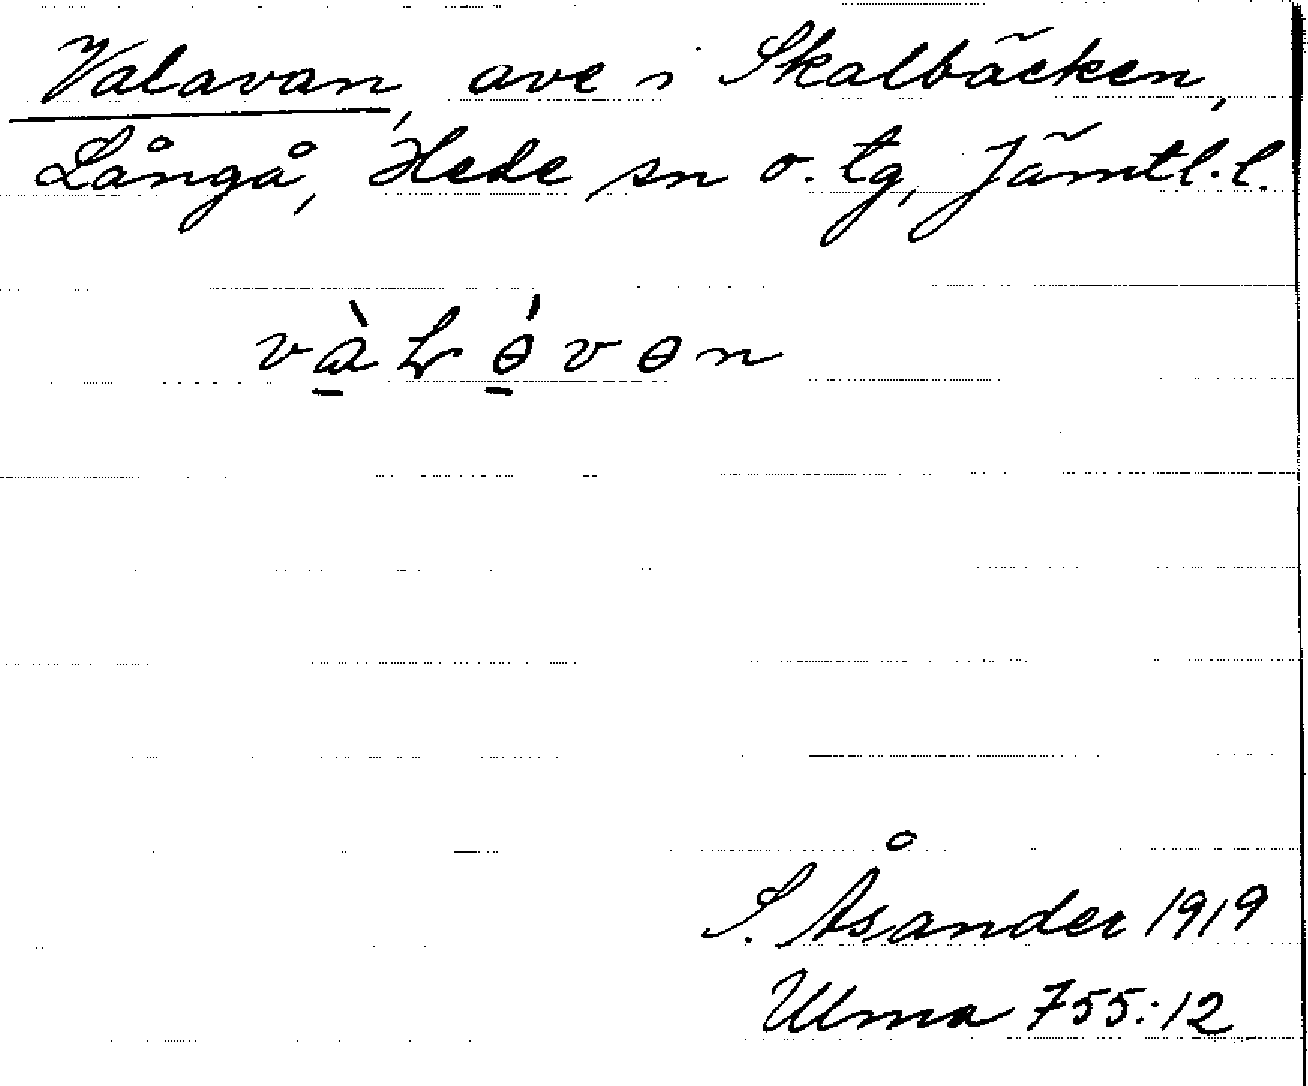 Valavan, ave i Skalbäcken,
Långå, Hede sn o. tg, Jämtl. l.
và̱Lɵ̱́vɵn
S. Åsander 1919
Ulma 755:12